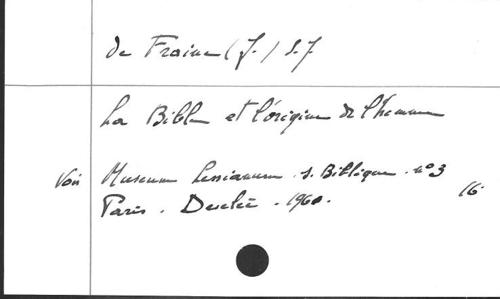 de Fraine (J.) S.J
La Bible et l'origine de l'homme
Voir Museum Lessianum . S. Biblique . n° 3
Paris . Desclée . 1960 . 16.